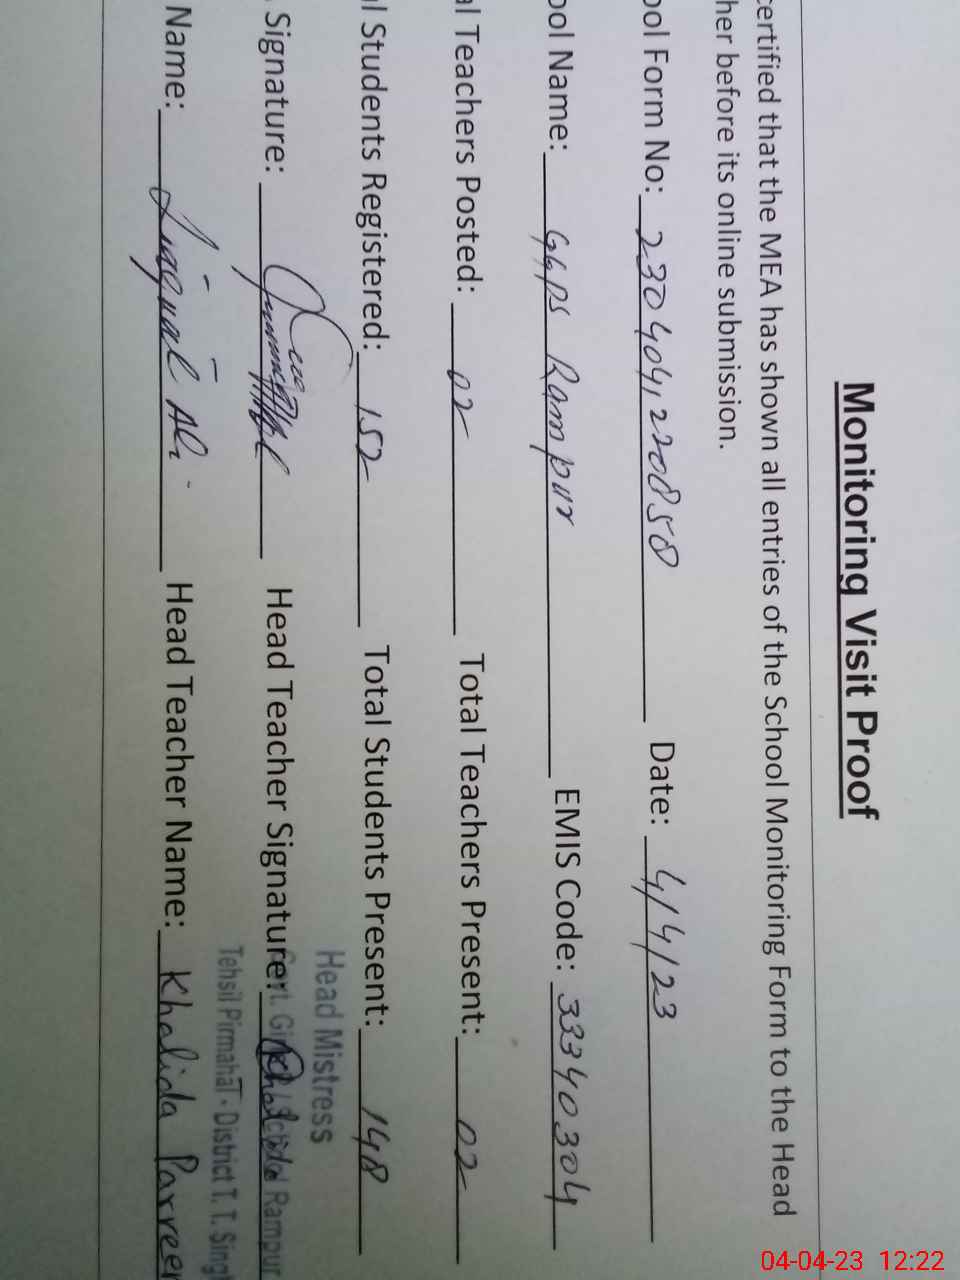 Monitoring Visit Proof
certified that the MEA has shown all entries of the School Monitoring Form to the Head
her before its online submission.
ool Form No: 2304041220858 Date: 4/4/23
ool Name: GGPS Rampur EMIS Code: 33340304
al Teachers Posted: 02 Total Teachers Present: 02
al Students Registered: 152 Total Students Present: 148
Signature: Head Teacher Signature:
Head Mistress
Govt. Girls School Rampur
Tehsil Pirmahal - District T. T. Singh
Name: Liaquat Ali Head Teacher Name: Khalida Parveen
04-04-23 12:22